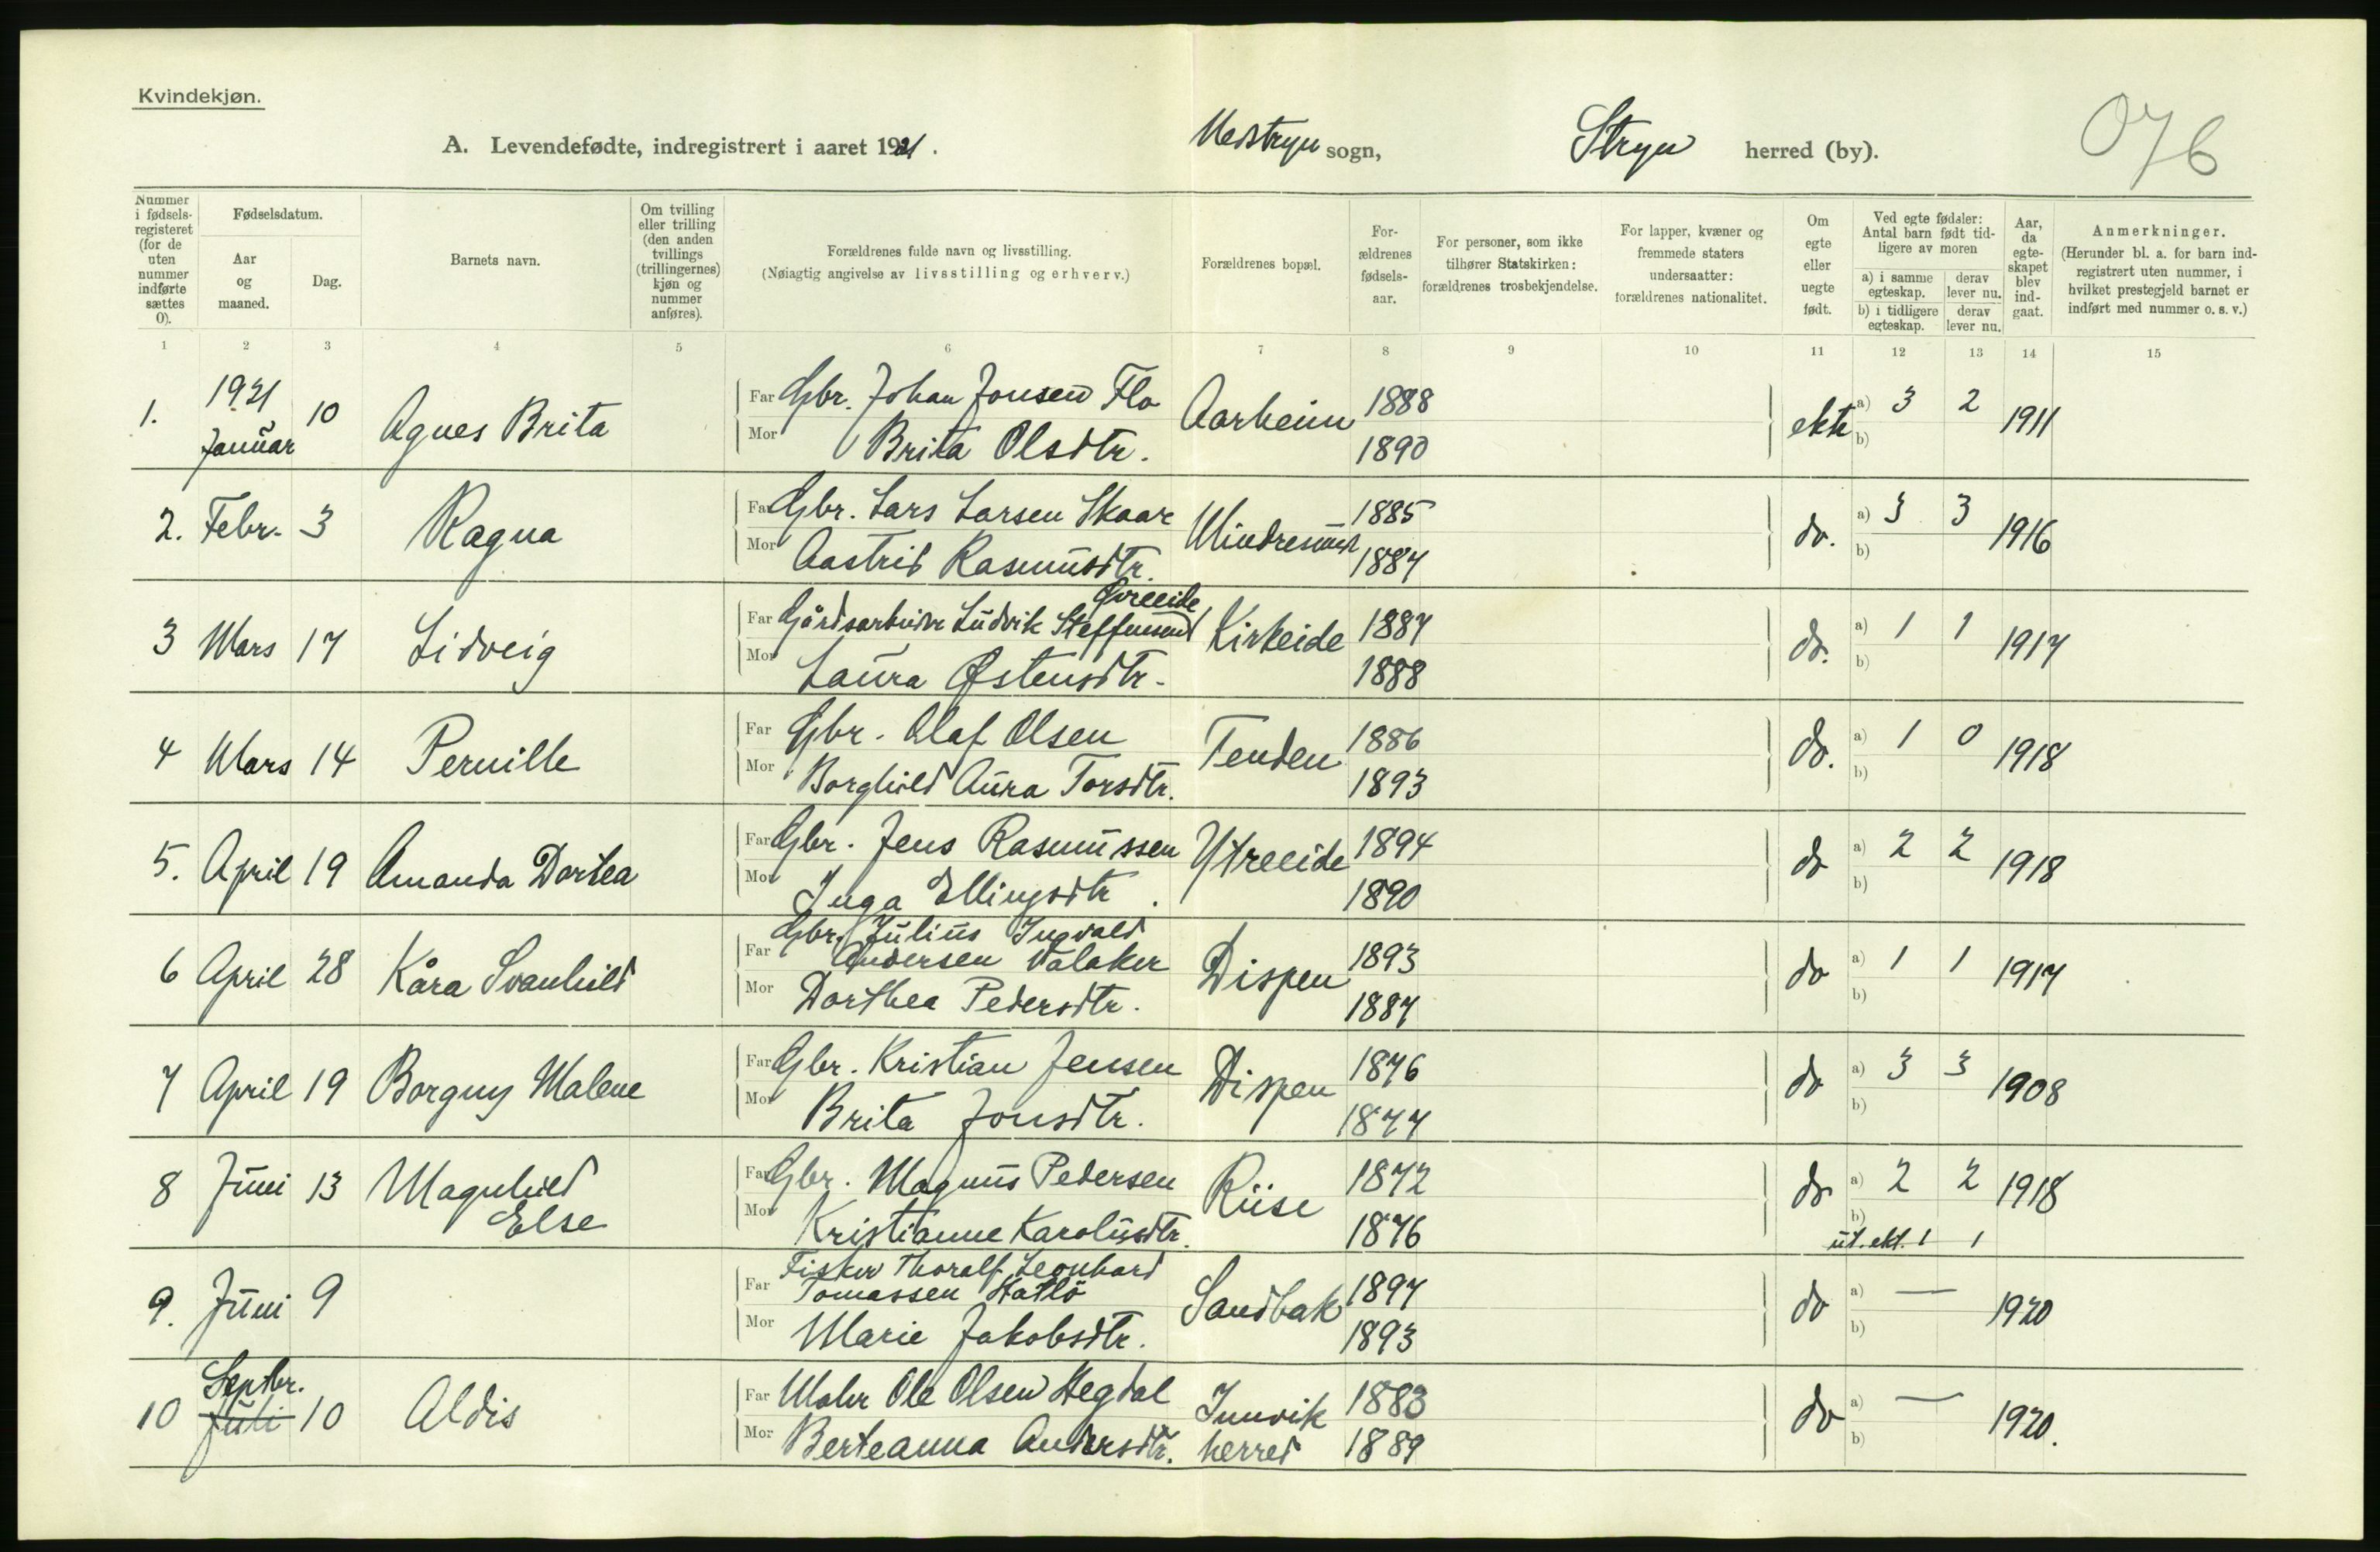 Kvindekjøn.
A. Levendefødte, indregistrert i aaret 1921. Nedstryn sogn, Stryn herred (by). 076
Nummer i fødselsregisteret (for de uten nummer indførte sættes 0).
Fødselsdatum.
Aar og maaned.
Dag.
Barnets navn.
Om tvilling eller trilling (den anden tvillings (trillingernes) kjøn og nummer anføres).
Forældrenes fulde navn og livsstilling.
(Nøiagtig angivelse av livsstilling og erhverv.)
Forældrenes bopæl.
Forældrenes fødselsaar.
For personer, som ikke tilhører Statskirken: forældrenes trosbekjendelse.
For lapper, kvæner og fremmede staters undersaatter: forældrenes nationalitet.
Om egte eller uegte født.
Ved egte fødsler: Antal barn født tidligere av moren
a) i samme egteskap. derav lever nu.
b) i tidligere egteskap. derav lever nu.
Aar, da egteskapet blev indgaat.
Anmerkninger.
(Herunder bl. a. for barn indregistrert uten nummer, i hvilket prestegjeld barnet er indført med nummer o. s. v.)
1 2 3 4 5 6 7 8 9 10 11 12 13 14 15
1. 1921 Januar 10 Agnes Brita Far Gbr. Johan Jonsen Flo Aarheim 1888 ekte a) 3 2 1911
Mor Brita Olsdtr. 1890 b)
2. Febr. 3 Ragna Far Gbr. Lars Larsen Skaar Mindresund 1885 do. a) 3 3 1916
Mor Aastrid Rasmusdtr. 1887 b)
3 Mars 17 Lidveig Far Gårdsarbeider Ludvik Steffensen Øvreeide Kirkeide 1887 do. a) 1 1 1917
Mor Laura Østensdtr. 1888 b)
4 Mars 14 Pernille Far Gbr. Olaf Olsen Tenden 1886 do. a) 1 0 1918
Mor Borghild Aura Torsdtr. 1893 b)
5. April 19 Amanda Dortea Far Gbr. Jens Rasmussen Ytreeide 1894 do a) 2 2 1918
Mor Inga Ellingsdtr. 1890 b)
6 April 28 Kåra Svanhild Far Gbr. Julius Ingvald Andersen Valaker Dispen 1893 do a) 1 1 1917
Mor Dorthea Pedersdtr. 1887 b)
7 April 19 Borgny Malene Far Gbr. Kristian Jensen Dispen 1876 do a) 3 3 1908
Mor Brita Jonsdtr. 1877 b)
8 Juni 13 Magnhild Else Far Gbr. Magnus Pedersen Riise 1872 do a) 2 2 1918
Mor Kristianne Karolusdtr. 1876 b) ut. ekt. 1 1
9. Juni 9 Far Fisker Thoralf Leonhard Tomassen Hatlö Sandbak 1897 do a) — 1920
Mor Marie Jakobsdtr. 1893 b)
10 Septbr. Juli 10 Aldis Far Maler Ole Olsen Hegdal Innvik herred 1883 do a) — 1920.
Mor Berteanna Andersdtr. 1889 b)